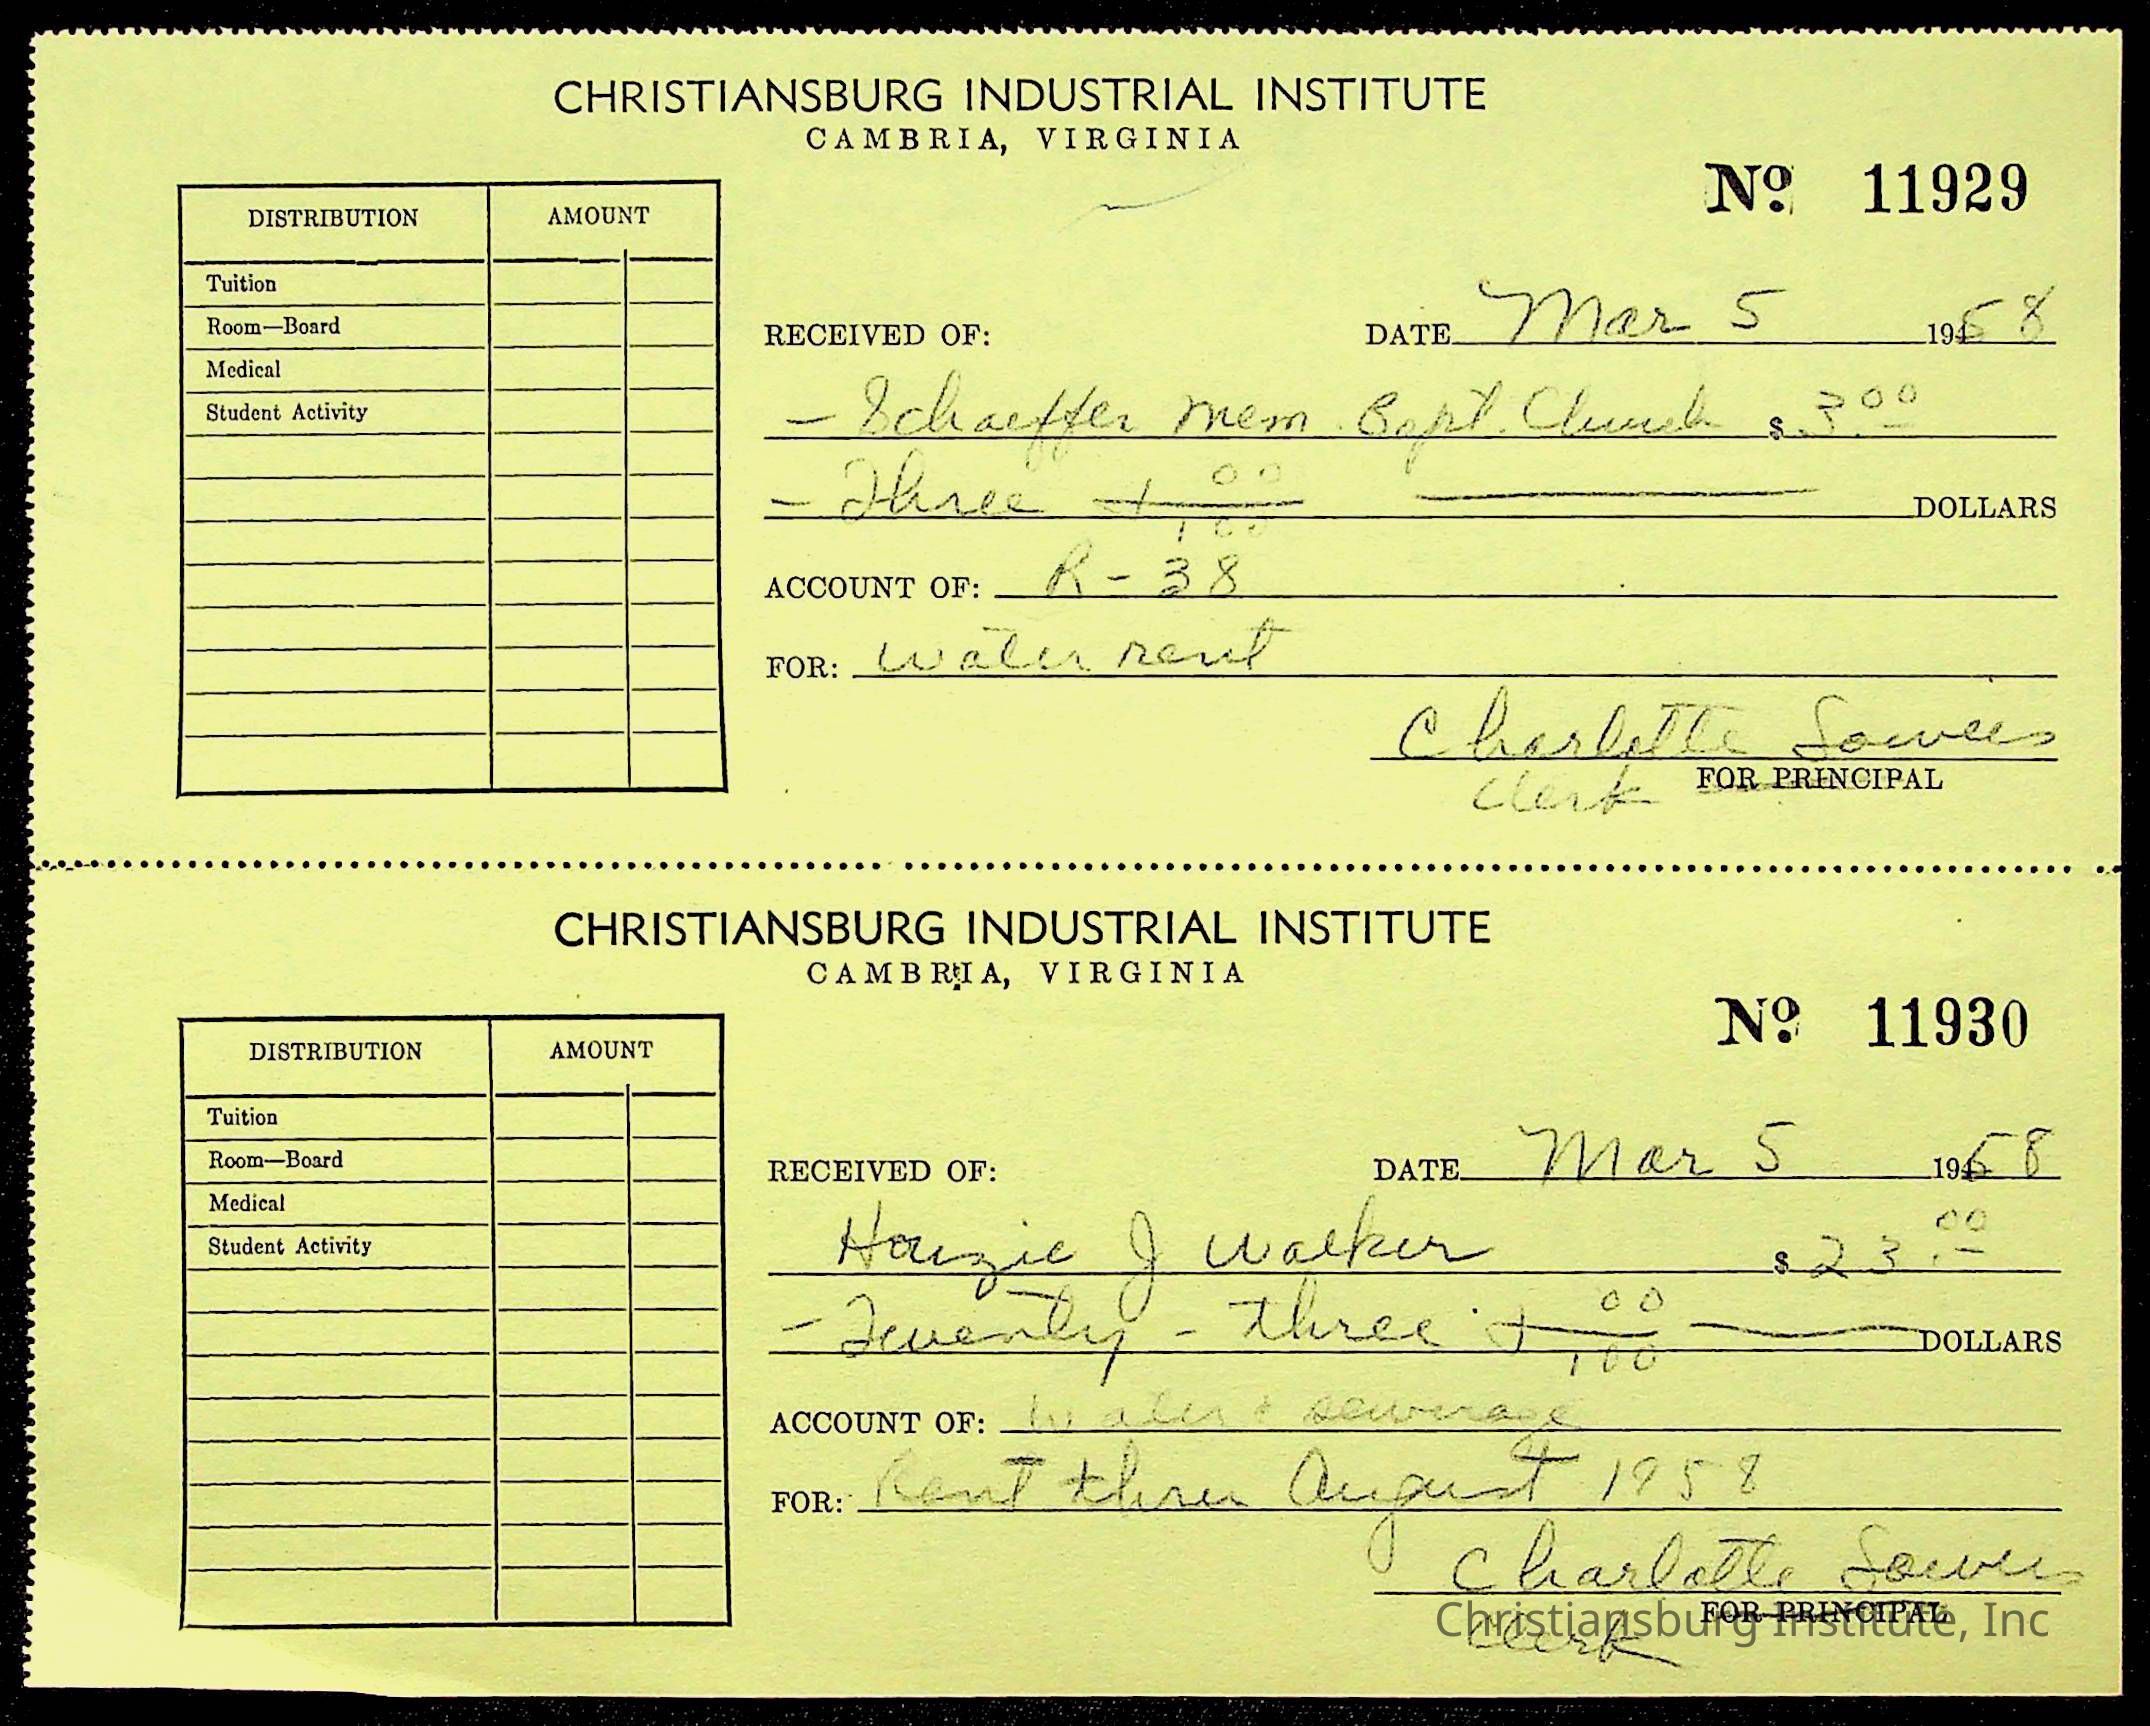 CHRISTIANSBURG INDUSTRIAL INSTITUTE
CAMBRIA, VIRGINIA
Nº 11929
DISTRIBUTION AMOUNT
Tuition
Room—Board
Medical
Student Activity
RECEIVED OF: DATE Mar 5 1958
- Schaeffer Mem. Bapt. Church $ 3.00
- Three + 00/100 DOLLARS
ACCOUNT OF: R-38
FOR: water rent
Charlotte Sowers
Clerk FOR PRINCIPAL
CHRISTIANSBURG INDUSTRIAL INSTITUTE
CAMBRIA, VIRGINIA
Nº 11930
DISTRIBUTION AMOUNT
Tuition
Room—Board
Medical
Student Activity
RECEIVED OF: DATE Mar 5 1958
J Walker $ 23.00
- Twenty-three + 00/100 DOLLARS
ACCOUNT OF: Water & sewerage
FOR: Rent thru August 1958
Charlotte Sowers
Clerk FOR PRINCIPAL
Christiansburg Institute, Inc